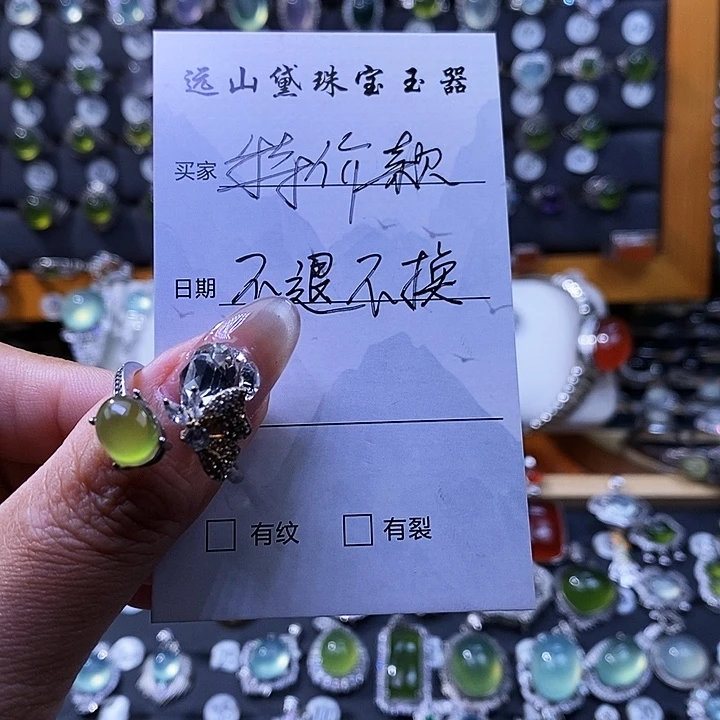 远山黛珠宝玉器
买家 特价款
日期 不退不换
有纹 有裂